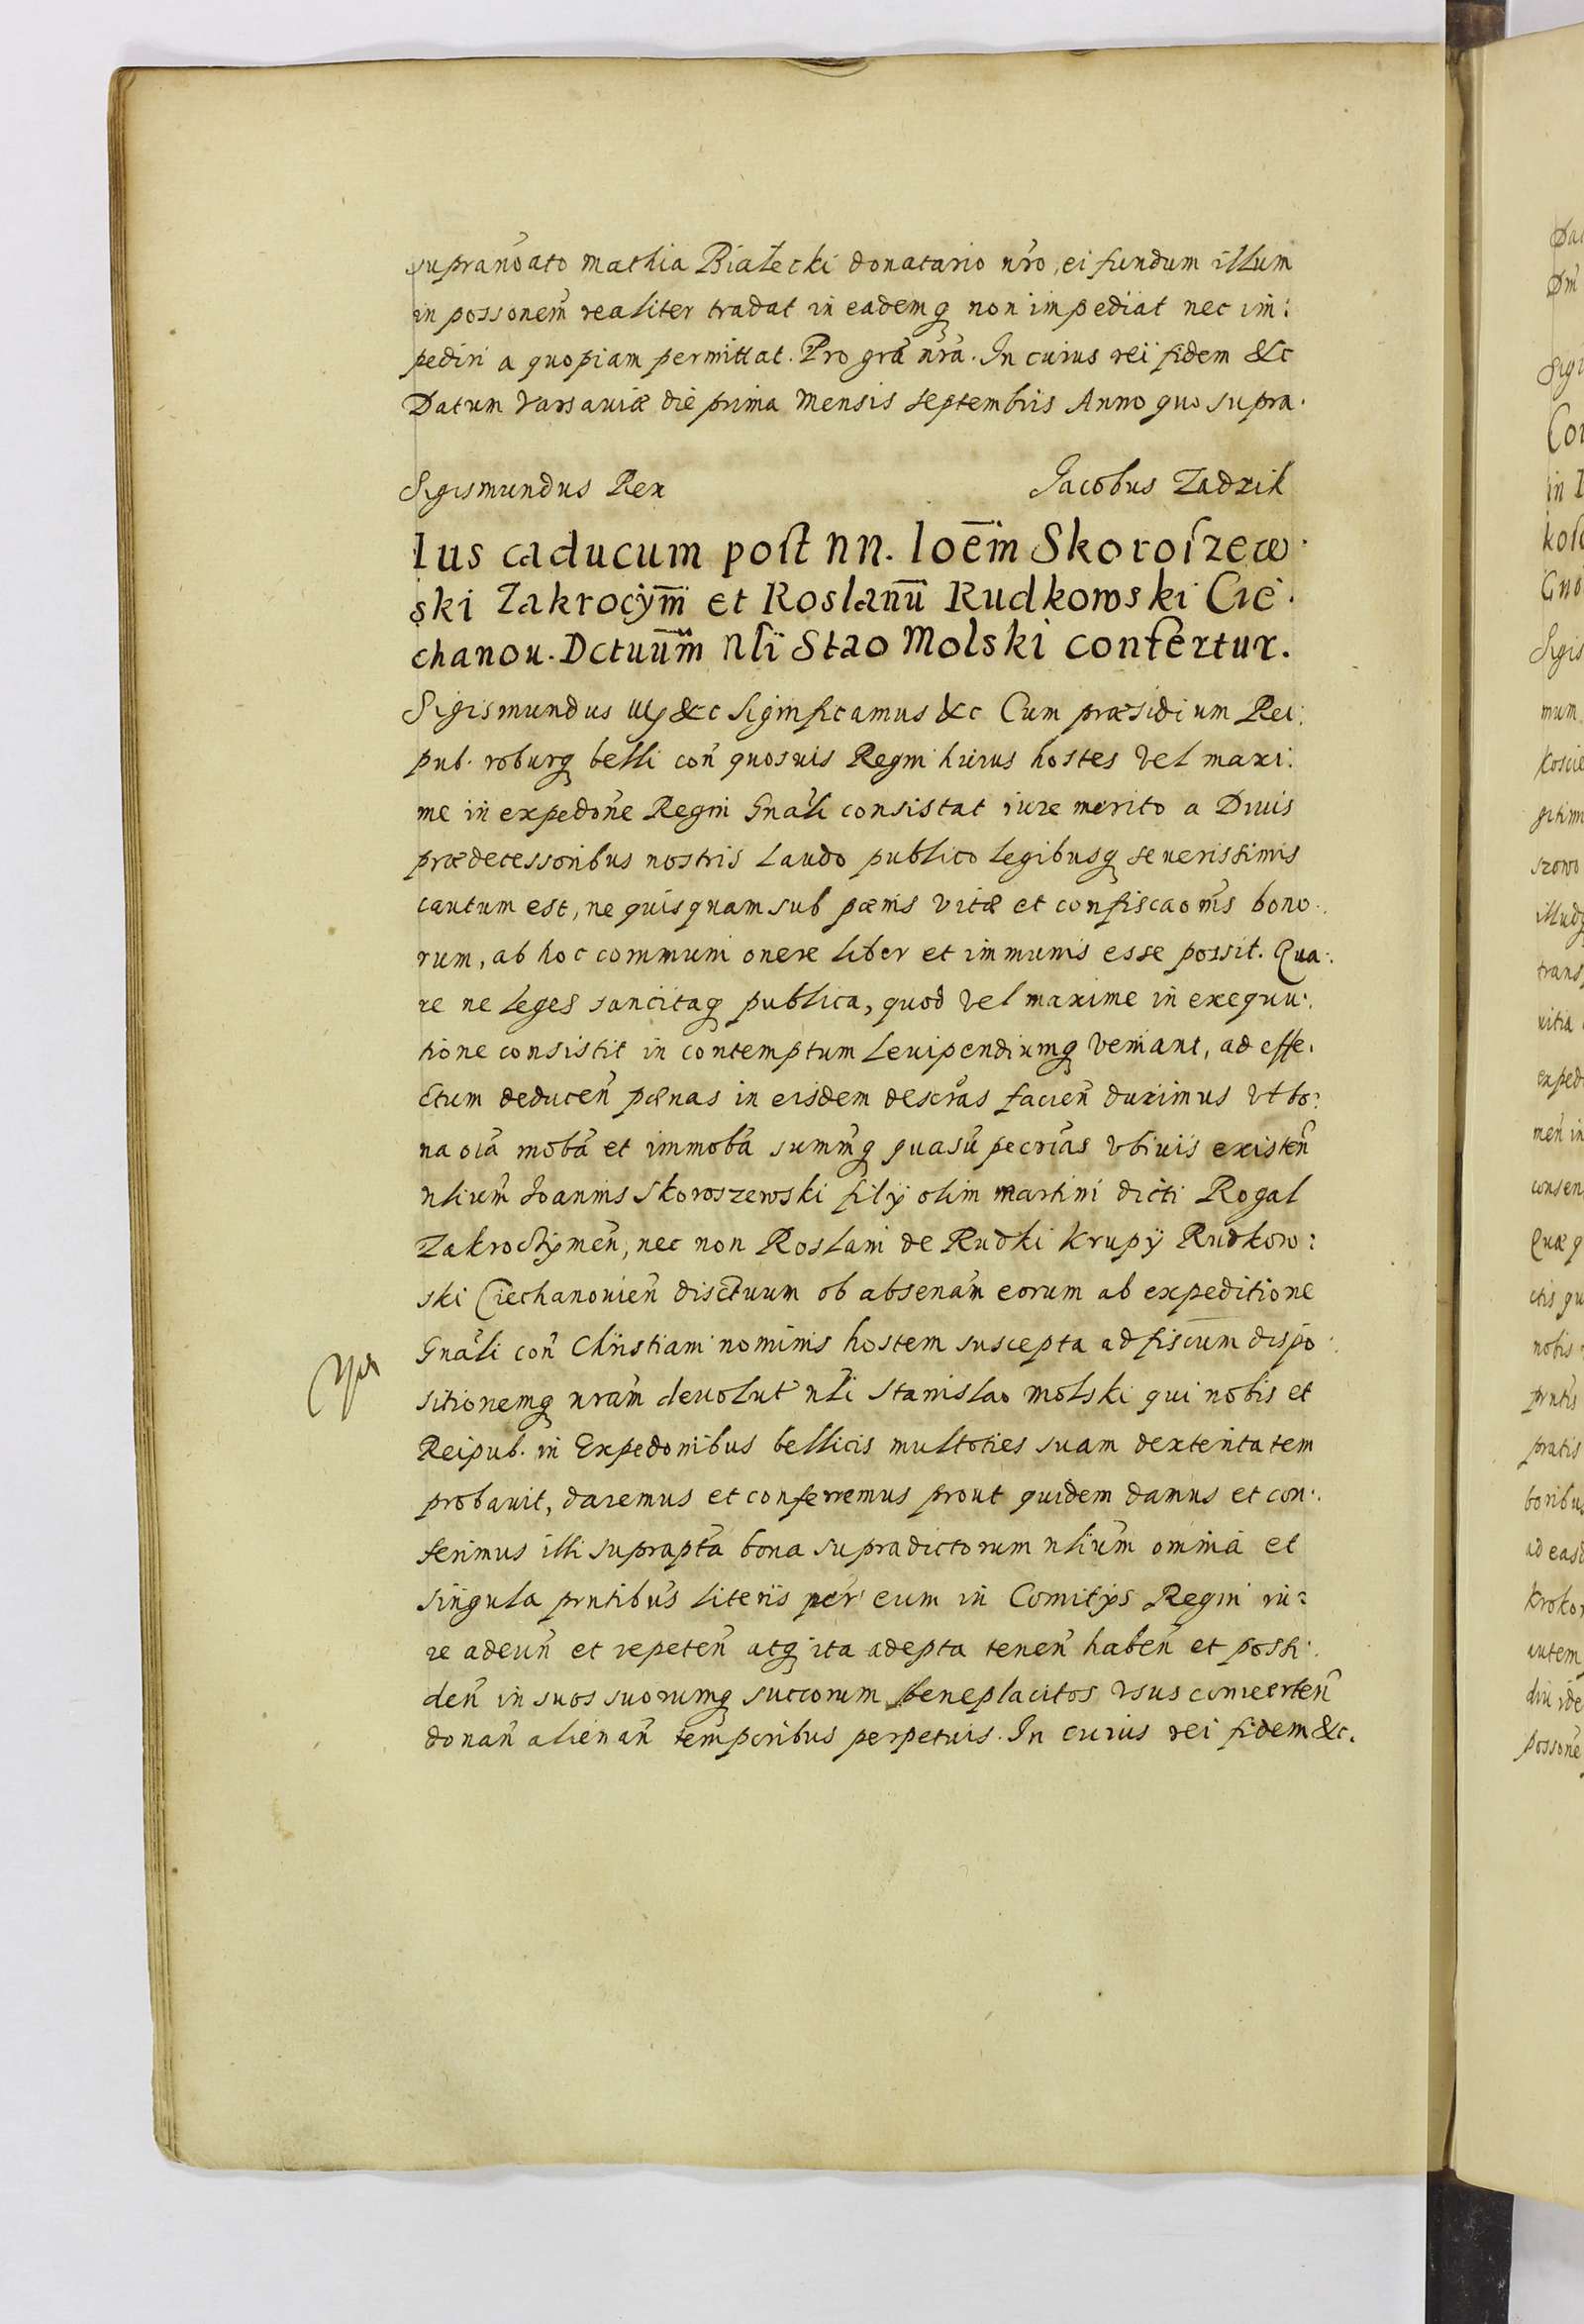 supranoãto Mathia Białecki donatario nr̃o, ei fundum illum
in possonem̃ realiter tradat in eademq̨ non impediat nec im:
pediri a quopiam permittat. Pro gr̃a nr̃a. In cuius rei fidem &c
Datum Varsauiæ die prima Mensis Septembris Anno quo supra.
Sigismundus Rex
Jacobus Zadzik
Ius caducum post nn. Ioēm Skoroſzew
ski Zakrocym̄ et Roslanū Rudkowski Cie
chanou. Dctuūm Nli Stao Molski confertur.
Sigismundus III &c Significamus &c Cum præsidium Rei:
pub. roburq̨ belli coñ quosuis Regni huius hostes vel maxi:
me in expedoñe Regni Gnãli consistat iure merito a Diuis
prædecessoribus nostris Laudo publico legibusq̨ seuerissimis
cautum est, ne quisquam sub pœnis vitæ et confiscaoñis bono:
rum, ab hoc communi onere liber et immunis esse possit. Qua:
re ne leges sancitaq̨ publica, quod vel maxime in exequu:
tione consistit in contemptum leuipendiumq̨ veniant, ad effe:
ctum deduceñ pœnas in eisdem descrãs facieñ duximus vt bo:
na oĩa mobã et immobã summq̨̃ quasũ pecriãs vbiuis existeñ
nlium̃ Joannis Skoroszewski filÿ olim Martini dicti Rogal
Zakroczymeñ, nec non Roslani de Rudki Krupÿ Rudkow:
ski Ciechanouieñ disctuum ob absenam̃ eorum ab expeditione
Gnãli coñ Christiani nominis hostem suscepta ad fiscum dispo:
sitionemq̨ nram̃ deuolut̃ nli Stanislao Molski qui nobis et
Reipub. in Expedonibus bellicis multoties suam dexteritatem
probauit, daremus et conferremus prout quidem damus et con:
ferimus illi suprapt̃a bona supradictorum nlium̃ omnia et
singula prntibus̃ literis per eum in Comitÿs Regni iu:
re adeuñ et repeteñ atq̨ ita adepta teneñ habeñ et possi:
deñ in suos suorumq̨ succorum beneplacitos vsus conuerteñ
donañ alienañ temporibus perpetuis. In cuius rei fidem &c.